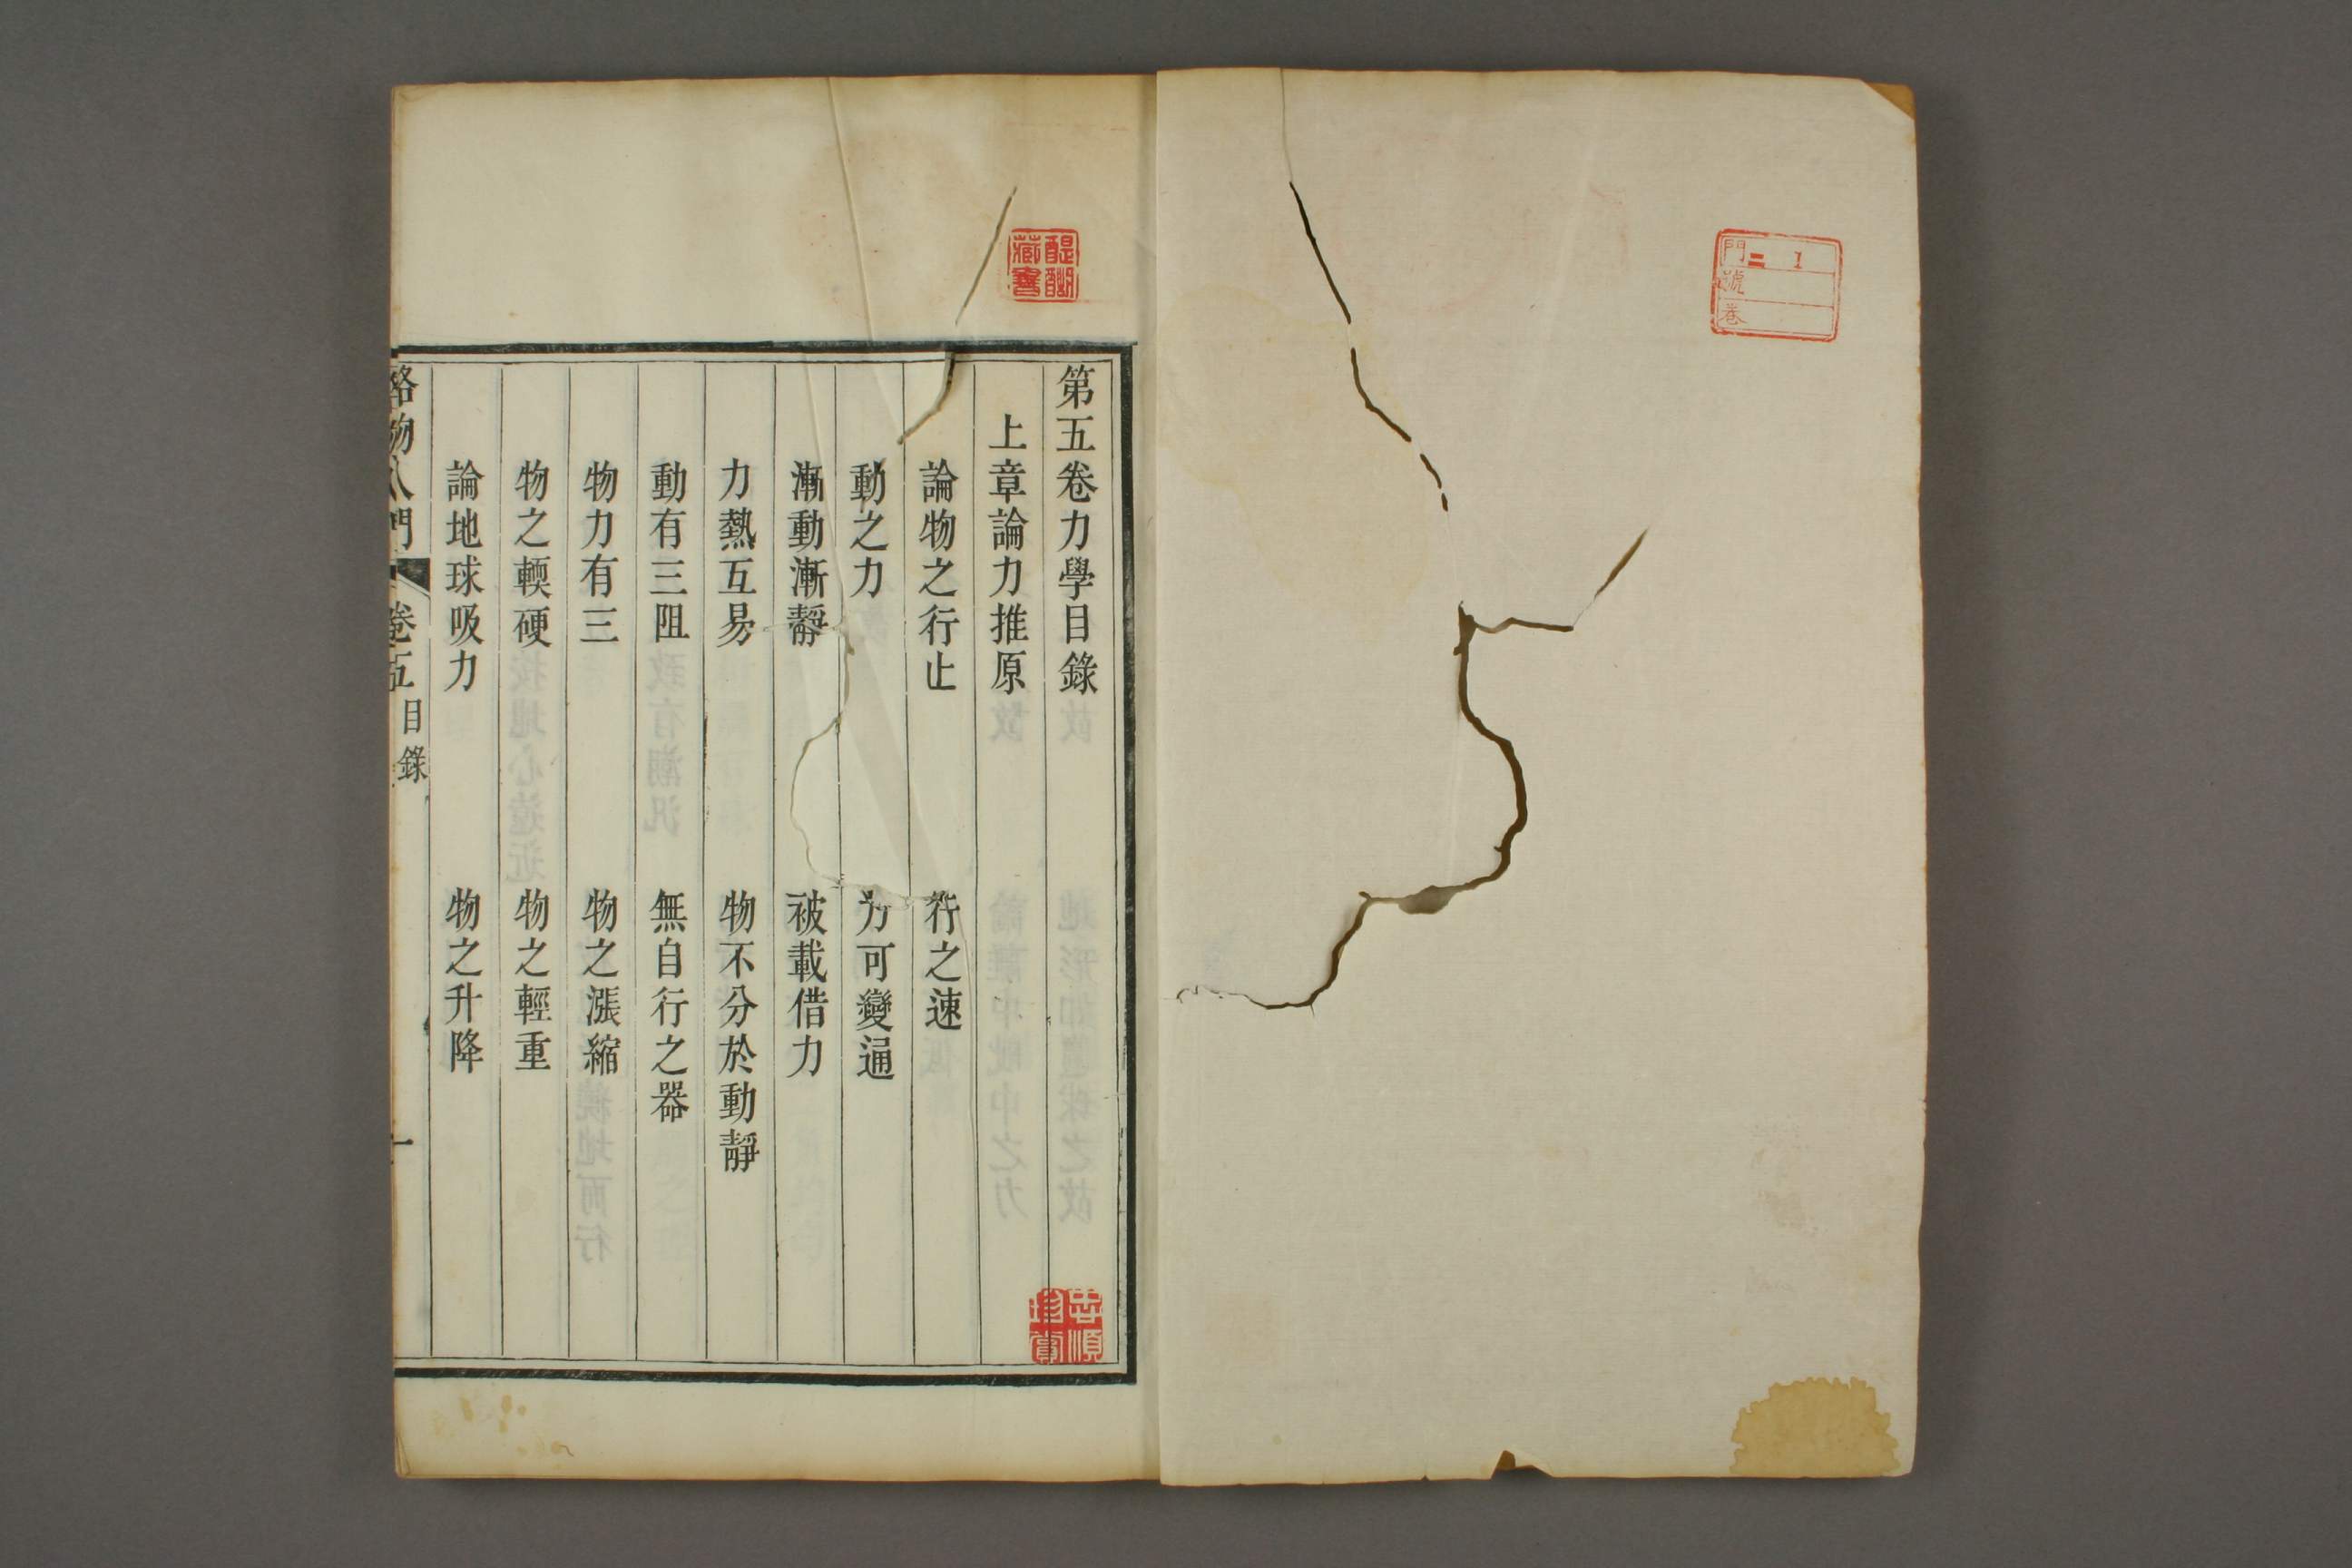 門 二 1
號
卷
醍醐藏書
第五卷力學目錄
上章論力推原
論物之行止 行之速
動之力 力可變通
漸動漸靜 被載借力
力熱互易 物不分於動靜
動有三阻 無自行之器
物力有三 物之漲縮
物之輭硬 物之輕重
論地球吸力 物之升降
格物入門 卷五 目錄 一